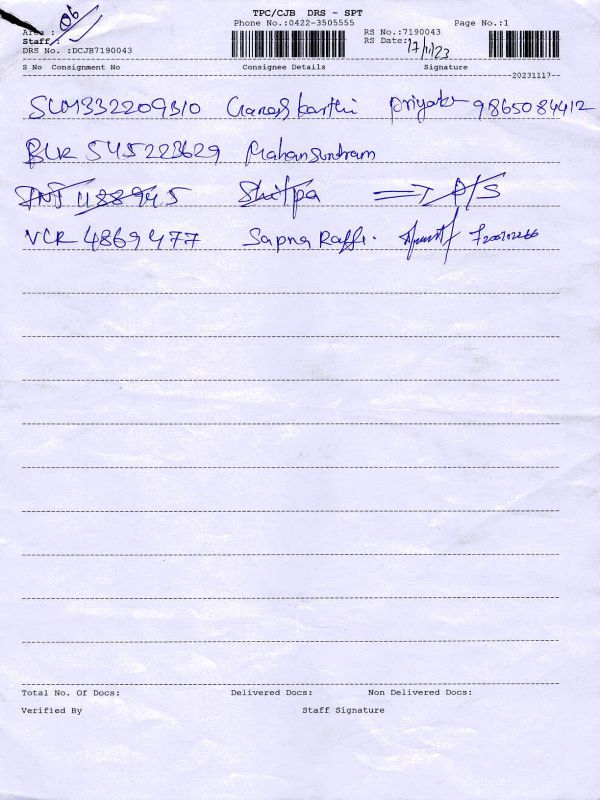 TPC/CJB DRS - SPT
Phone No.:0422-3505555 Page No.:1
Area : 06
Staff : RS No.:7190043
DRS No. :DCJB7190043 RS Date: 17/11/23
S No Consignment No Consignee Details Signature
--20231117--
SLM332209310 Ganesh karthi 9865084412
BLR 545223629 Mahansundram
Shilpa
VCR 4869477 Sapna Raffi.
Total No. Of Docs: Delivered Docs: Non Delivered Docs:
Verified By Staff Signature